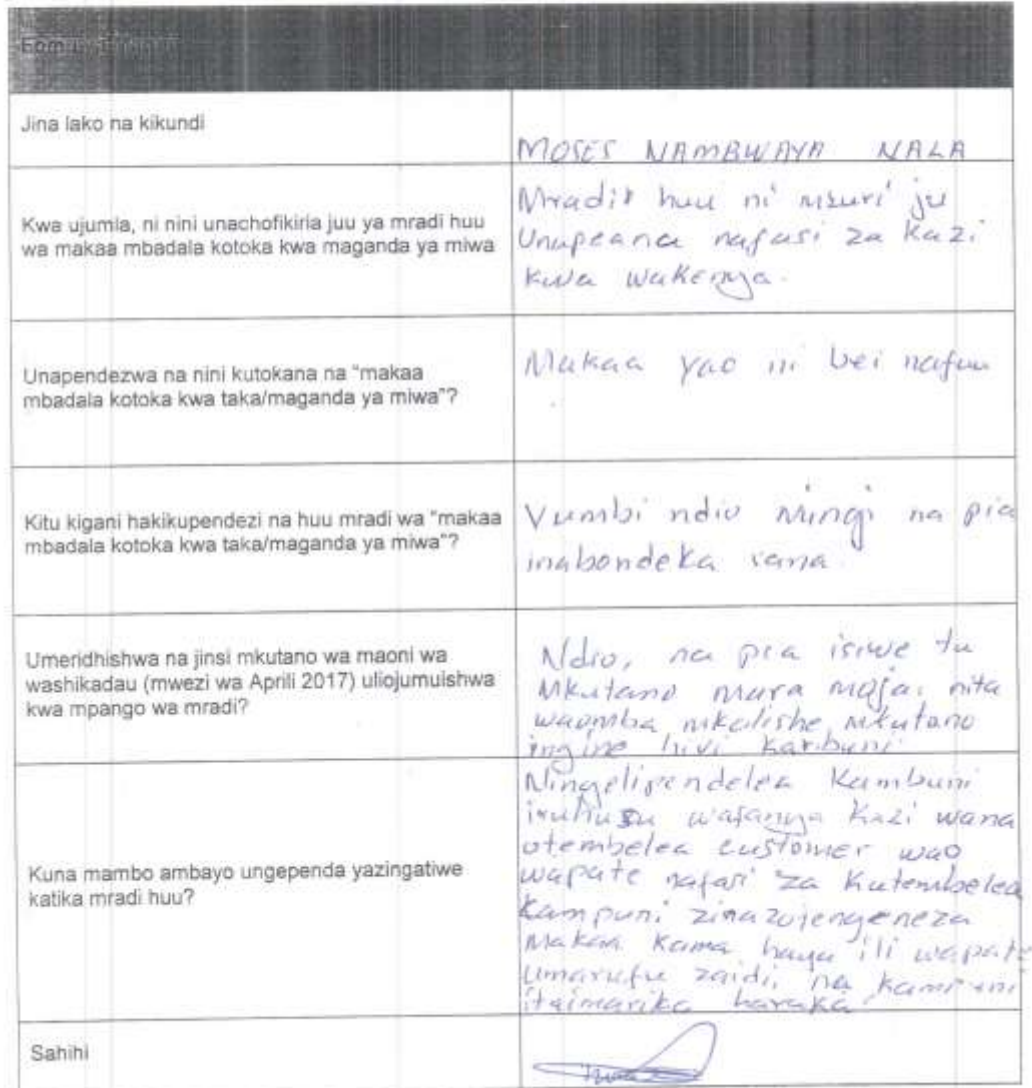 Jina lako na kikundi
MOSES NAMBWAYA NALA
Kwa ujumla, ni nini unachofikiria juu ya mradi huu
wa makaa mbadala kotoka kwa maganda ya miwa
Mradit huu ni msuri ju
Unapeana nafasi za kazi
kwa wakenya.
Unapendezwa na nini kutokana na "makaa
mbadala kotoka kwa taka/maganda ya miwa"?
Makaa yao ni bei nafuu
Kitu kigani hakikupendezi na huu mradi wa "makaa
mbadala kotoka kwa taka/maganda ya miwa"?
Vumbi ndio mingi na pia
inabondeka sana
Umeridhishwa na jinsi mkutano wa maoni wa
washikadau (mwezi wa Aprili 2017) uliojumuishwa
kwa mpango wa mradi?
Ndio, na pia isiwe tu
Mkutano mara moja, nita
waomba mkalishe mkutano
ingine hivi karibuni
Kuna mambo ambayo ungependa yazingatiwe
katika mradi huu?
Ningelipendelea Kambuni
iruhusu wafanya kazi wana
otembelea customer wao
wapate nafasi za Kutembelea
Kampuni zinazojengeneza
Makaa Kama haya ili wapate
Umarufu zaidi, na kampuni
itaimarika haraka
Sahihi